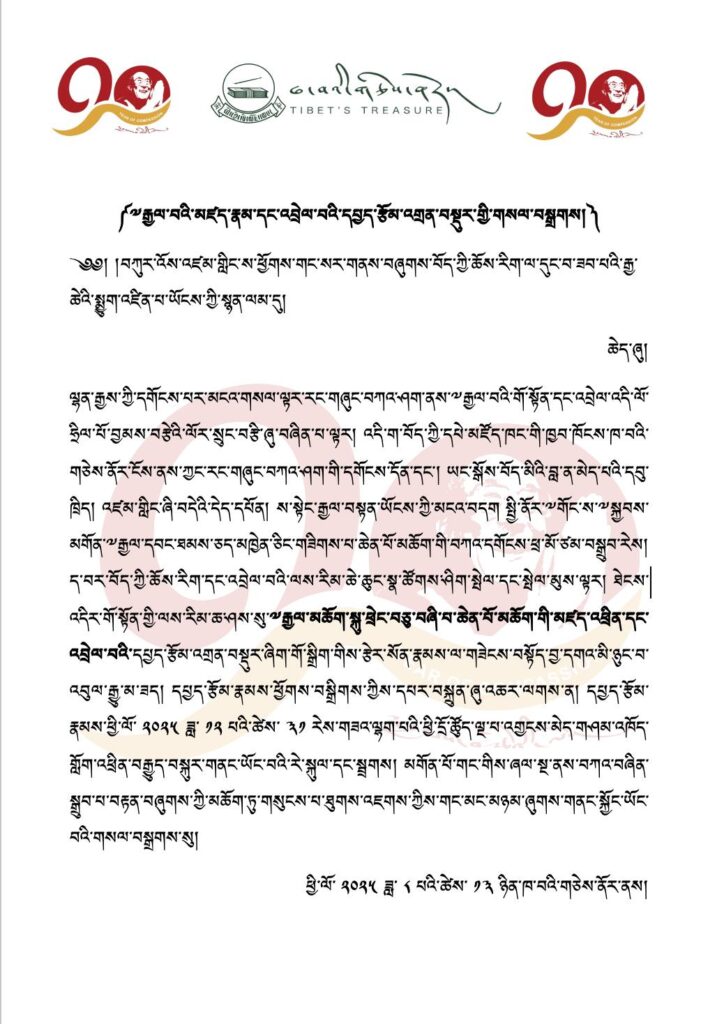 YEAR OF COMPASSION
TIBET'S TREASURE
YEAR OF COMPASSION
༼༸རྒྱལ་བའི་མཛད་རྣམ་དང་འབྲེལ་བའི་དཔྱད་རྩོམ་འགྲན་བསྡུར་གྱི་གསལ་བསྒྲགས།༽
༄༅། །བཀུར་འོས་འཛམ་གླིང་ས་ཕྱོགས་གང་སར་གནས་བཞུགས་བོད་ཀྱི་ཆོས་རིག་ལ་དུང་བ་ཟབ་པའི་རྒྱ་
ཆེའི་སྨྱུག་འཛིན་པ་ཡོངས་ཀྱི་སྙན་ལམ་དུ།
ཆེད་ཞུ།
ལྷན་རྒྱས་ཀྱི་དགོངས་པར་མངའ་གསལ་ལྟར་རང་གཞུང་བཀའ་ཤག་ནས་༸རྒྱལ་བའི་གོ་སྟོན་དང་འབྲེལ་འདི་ལོ་
ཧྲིལ་པོ་བྱམས་བརྩེའི་ལོར་སྲུང་བརྩི་ཞུ་བཞིན་པ་ལྟར། འདི་ག་བོད་ཀྱི་དཔེ་མཛོད་ཁང་གི་ཁྱབ་ཁོངས་ཁ་བའི་
གཅེས་ནོར་ངོས་ནས་ཀྱང་རང་གཞུང་བཀའ་ཤག་གི་དགོངས་དོན་དང་། ཡང་སྒོས་བོད་མིའི་བླ་ན་མེད་པའི་དབུ་
ཁྲིད། འཛམ་གླིང་ཞི་བདེའི་དེད་དཔོན། ས་སྟེང་རྒྱལ་བསྟན་ཡོངས་ཀྱི་མངའ་བདག སྤྱི་ནོར་༸གོང་ས་༸སྐྱབས་
མགོན་༸རྒྱལ་དབང་ཐམས་ཅད་མཁྱེན་ཅིང་གཟིགས་པ་ཆེན་པོ་མཆོག་གི་བཀའ་དགོངས་ཕྲ་མོ་ཙམ་བསྒྲུབ་རེས།
ད་བར་བོད་ཀྱི་ཆོས་རིག་དང་འབྲེལ་བའི་ལས་རིམ་ཆེ་ཆུང་སྣ་ཚོགས་ཤིག་སྤེལ་དང་སྤེལ་མུས་ལྟར། ཐེངས་
འདིར་གོ་སྟོན་གྱི་ལས་རིམ་ཆ་ཤས་སུ་༸རྒྱལ་མཆོག་སྐུ་ཕྲེང་བཅུ་བཞི་བ་ཆེན་པོ་མཆོག་གི་མཛད་འཕྲིན་དང་
འབྲེལ་བའི་དཔྱད་རྩོམ་འགྲན་བསྡུར་ཞིག་གོ་སྒྲིག་གིས་རྩེར་སོན་རྣམས་ལ་གཟེངས་བསྟོད་བྱ་དགའ་མི་ཉུང་བ་
འབུལ་རྒྱུ་མ་ཟད། དཔྱད་རྩོམ་རྣམས་ཕྱོགས་བསྒྲིགས་ཀྱིས་དཔར་བསྐྲུན་ཞུ་འཆར་ལགས་ན། དཔྱད་རྩོམ་
རྣམས་ཕྱི་ལོ་ ༢༠༢༥ ཟླ་ ༡༢ པའི་ཚེས་ ༣༡ རེས་གཟའ་ལྷག་པའི་ཕྱི་དྲོ་ཚུད་ལྔ་པ་འགྱངས་མེད་གཤམ་འཁོད་
གློག་འཕྲིན་བརྒྱུད་བསྐུར་གནང་ཡོང་བའི་རེ་སྐུལ་དང་སྦྲགས། མགོན་པོ་གང་གིས་ཞལ་སྔ་ནས་བཀའ་བཞིན་
སྒྲུབ་པ་བརྟན་བཞུགས་ཀྱི་མཆོག་ཏུ་གསུངས་པ་ཐུགས་འཇགས་ཀྱིས་གང་མང་མཉམ་ཞུགས་གནང་སྐྱོང་ཡོང་
བའི་གསལ་བསྒྲགས་སུ།
ཕྱི་ལོ་ ༢༠༢༥ ཟླ་ ༨ པའི་ཚེས་ ༡༣ ཉིན་ཁ་བའི་གཅེས་ནོར་ནས།